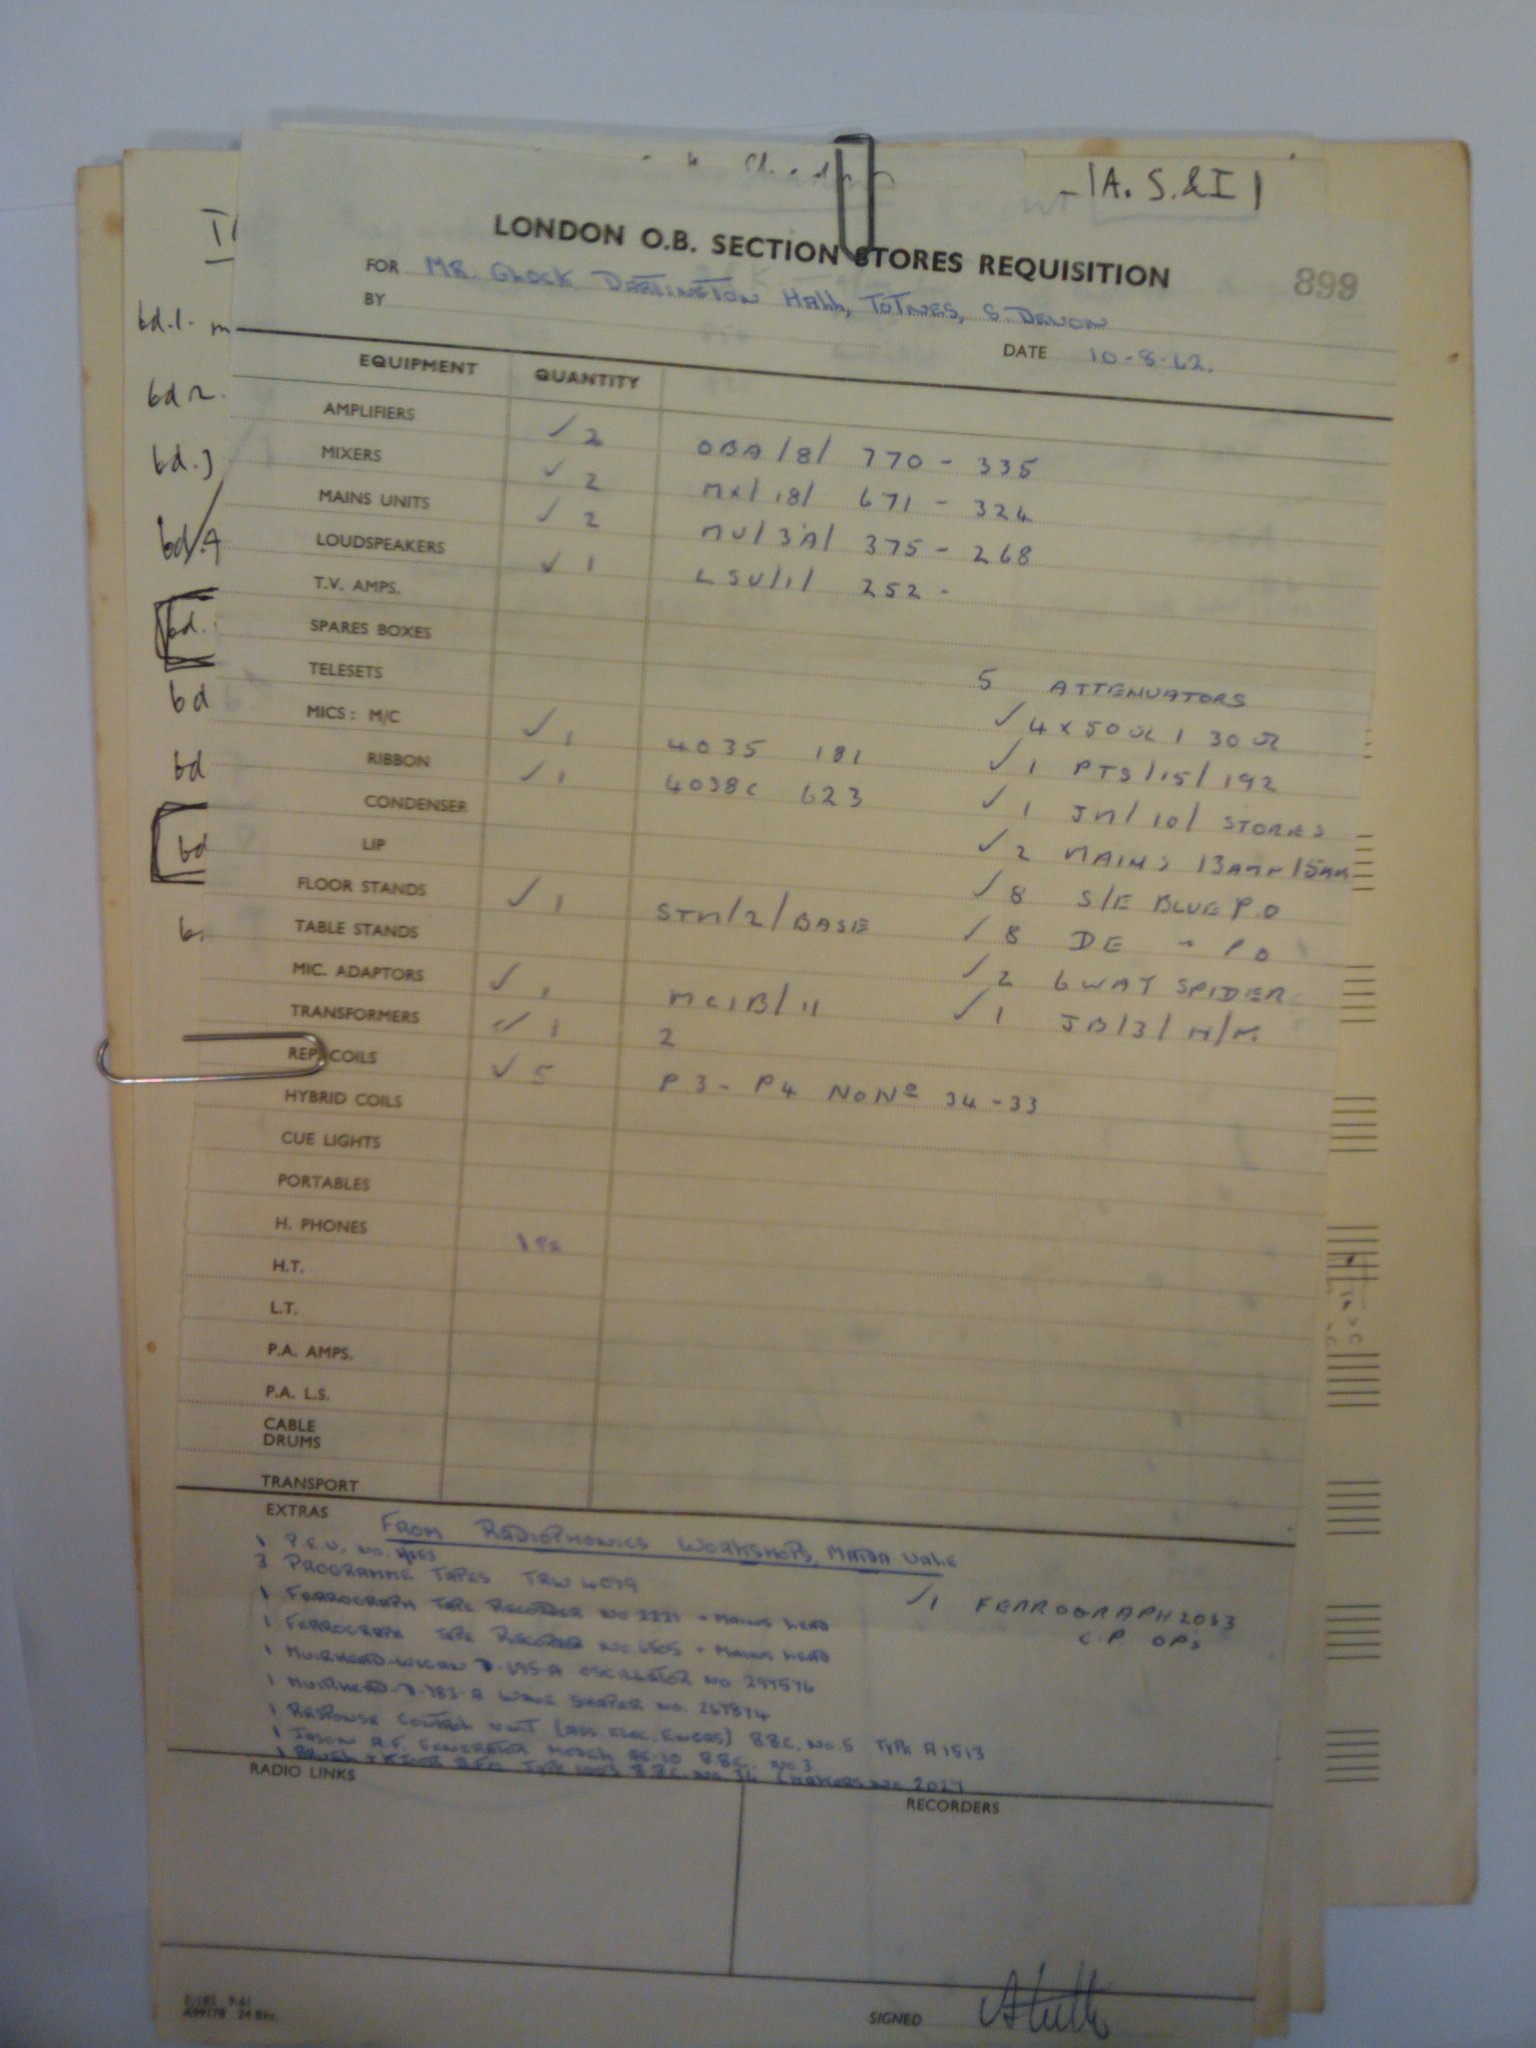 A. S. & I
LONDON O.B. SECTION STORES REQUISITION
899
FOR MR. GLOCK DARTINGTON HALL, TOTNES, S. DEVON
BY
DATE 10-8-62.
EQUIPMENT QUANTITY
AMPLIFIERS ✓ 2 OBA/8/ 770 - 335
MIXERS ✓ 2 MX/18/ 671 - 324
MAINS UNITS ✓ 2 MU/3A/ 375 - 268
LOUDSPEAKERS ✓ 1 LSU/1/ 252 -
T.V. AMPS.
SPARES BOXES
TELESETS 5 ATTENUATORS
MICS: M/C ✓ 1 4035 181 ✓ 4 x 50Ω 1 30Ω
RIBBON ✓ 1 4038C 623 ✓ 1 PTS/15/192
CONDENSER ✓ 1 JN/10/ STORES
LIP ✓ 2 MAINS 13AMP/5AM
FLOOR STANDS ✓ 1 STN/2/BASE ✓ 8 S/E BLUE P.O
TABLE STANDS ✓ 8 DE " PO
MIC. ADAPTORS ✓ 1 MC1B/11 ✓ 2 6 WAY SPIDER
TRANSFORMERS ✓ 1 2 ✓ 1 JB/3/
REP. COILS ✓ 5 P3 - P4 NO Nº 34 - 33
HYBRID COILS
CUE LIGHTS
PORTABLES
H. PHONES 1 PR
H.T.
L.T.
P.A. AMPS.
P.A. L.S.
CABLE
DRUMS
TRANSPORT
EXTRAS FROM RADIOPHONICS WORKSHOPS, MAIDA VALE
1 P.E.U. NO.
3 PROGRAMME TAPES TRW 4039
1 FERROGRAPH TAPE RECORDER NO 2221 + MAINS LEAD ✓ 1 FERROGRAPH 2033
C.P OPS
1 FERROGRAPH TAPE RECORDER NO. 6505 + MAINS LEAD
1 MUIRHEAD-WIGAN D-695-A OSCILLATOR NO 294576
1 MUIRHEAD-D-783-A WAVE SHAPER NO. 267874
1 RESPONSE CONTROL UNIT (ASS. ELEC. ENGRS) BBC. NO 5 TYPE A1513
1 JASON A.F. GENERATOR MODEL BBC NO. 3
1 BRUEL + KJOER B.F.O. TYPE BBC. NO. 36 (MAKERS NO. 2027
RADIO LINKS
RECORDERS
SIGNED
bd.1. m
bd 2.
bd.3
bd.4
bd.
bd
bd
bd